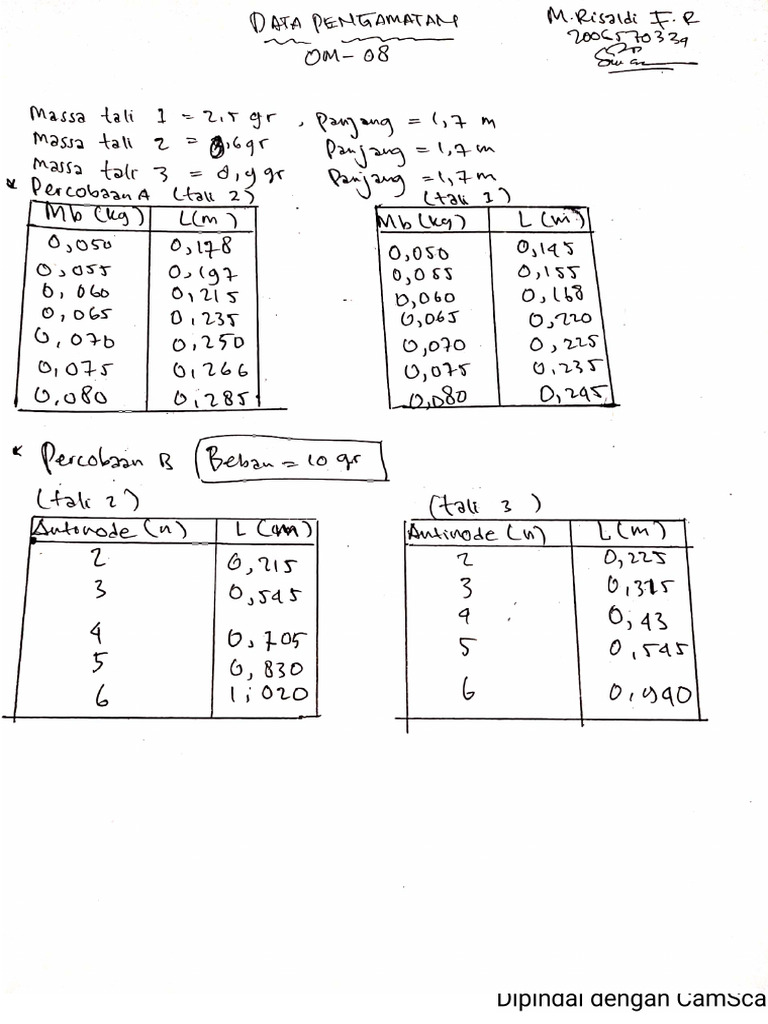 DATA PENGAMATAN
OM-08
M. Risaldi F. R
2006570339
Massa tali 1 = 2,5 gr , Panjang = 1,7 m
Massa tali 2 = 0,6 gr Panjang = 1,7 m
Massa tali 3 = 0,4 gr Panjang = 1,7 m
* Percobaan A (tali 2) (tali 1)
Mb (kg) L (m) Mb (kg) L (m)
0,050 0,178 0,050 0,145
0,055 0,197 0,055 0,155
0,060 0,215 0,060 0,168
0,065 0,235 0,065 0,220
0,070 0,250 0,070 0,225
0,075 0,266 0,075 0,235
0,080 0,285 0,080 0,245
* Percobaan B Beban = 10 gr
(tali 2) (tali 3)
Antinode (n) L (m) Antinode (n) L (m)
2 0,215 2 0,225
3 0,545 3 0,315
4 0,705 4 0,43
5 0,830 5 0,545
6 1,020 6 0,940
Dipindai dengan CamSca